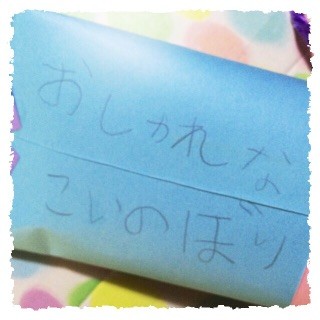 おしゃれな
こいのぼり